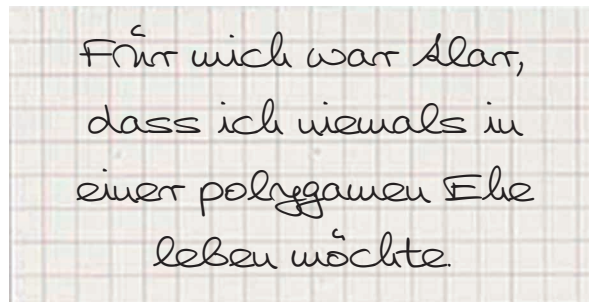 Für mich war klar,
dass ich niemals in
einer polygamen Ehe
leben möchte.